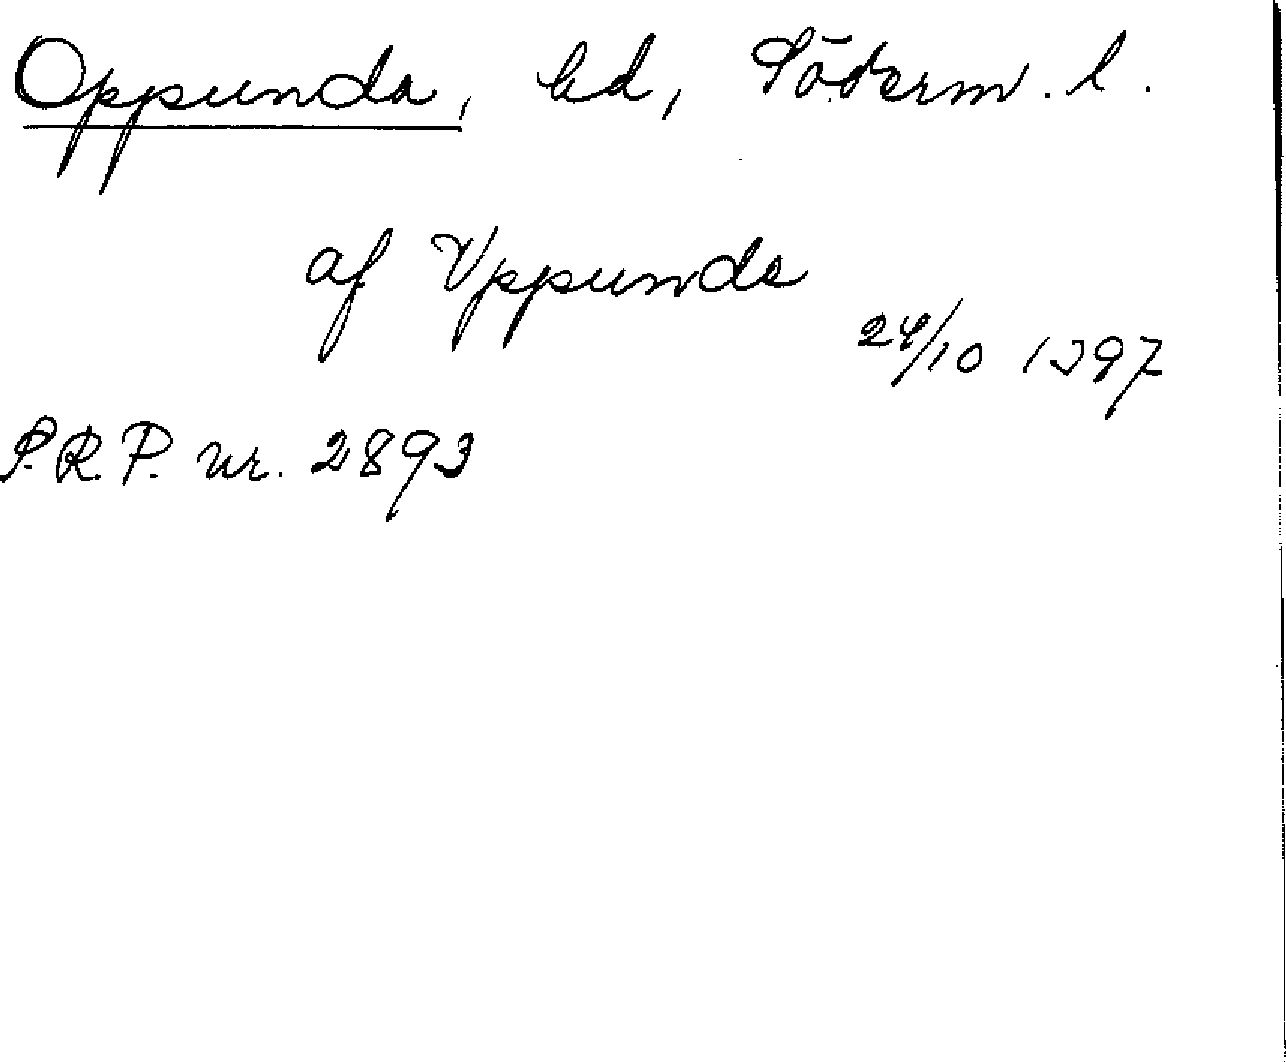 Oppunda, hd, Söderm. l.
af Vppunda
24/10 1397
P.R.P. nr. 2893